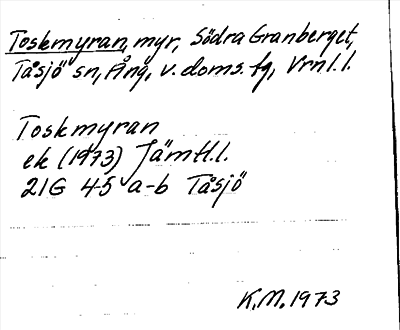 Toskmyran, myr, Södra Granberget,
Tåsjö sn, Ång, v. doms. fg, Vrnl. l.
Toskmyran
ek (1973) Jämtl. l.
21G 4-5 a-b Tåsjö
K.M. 1973